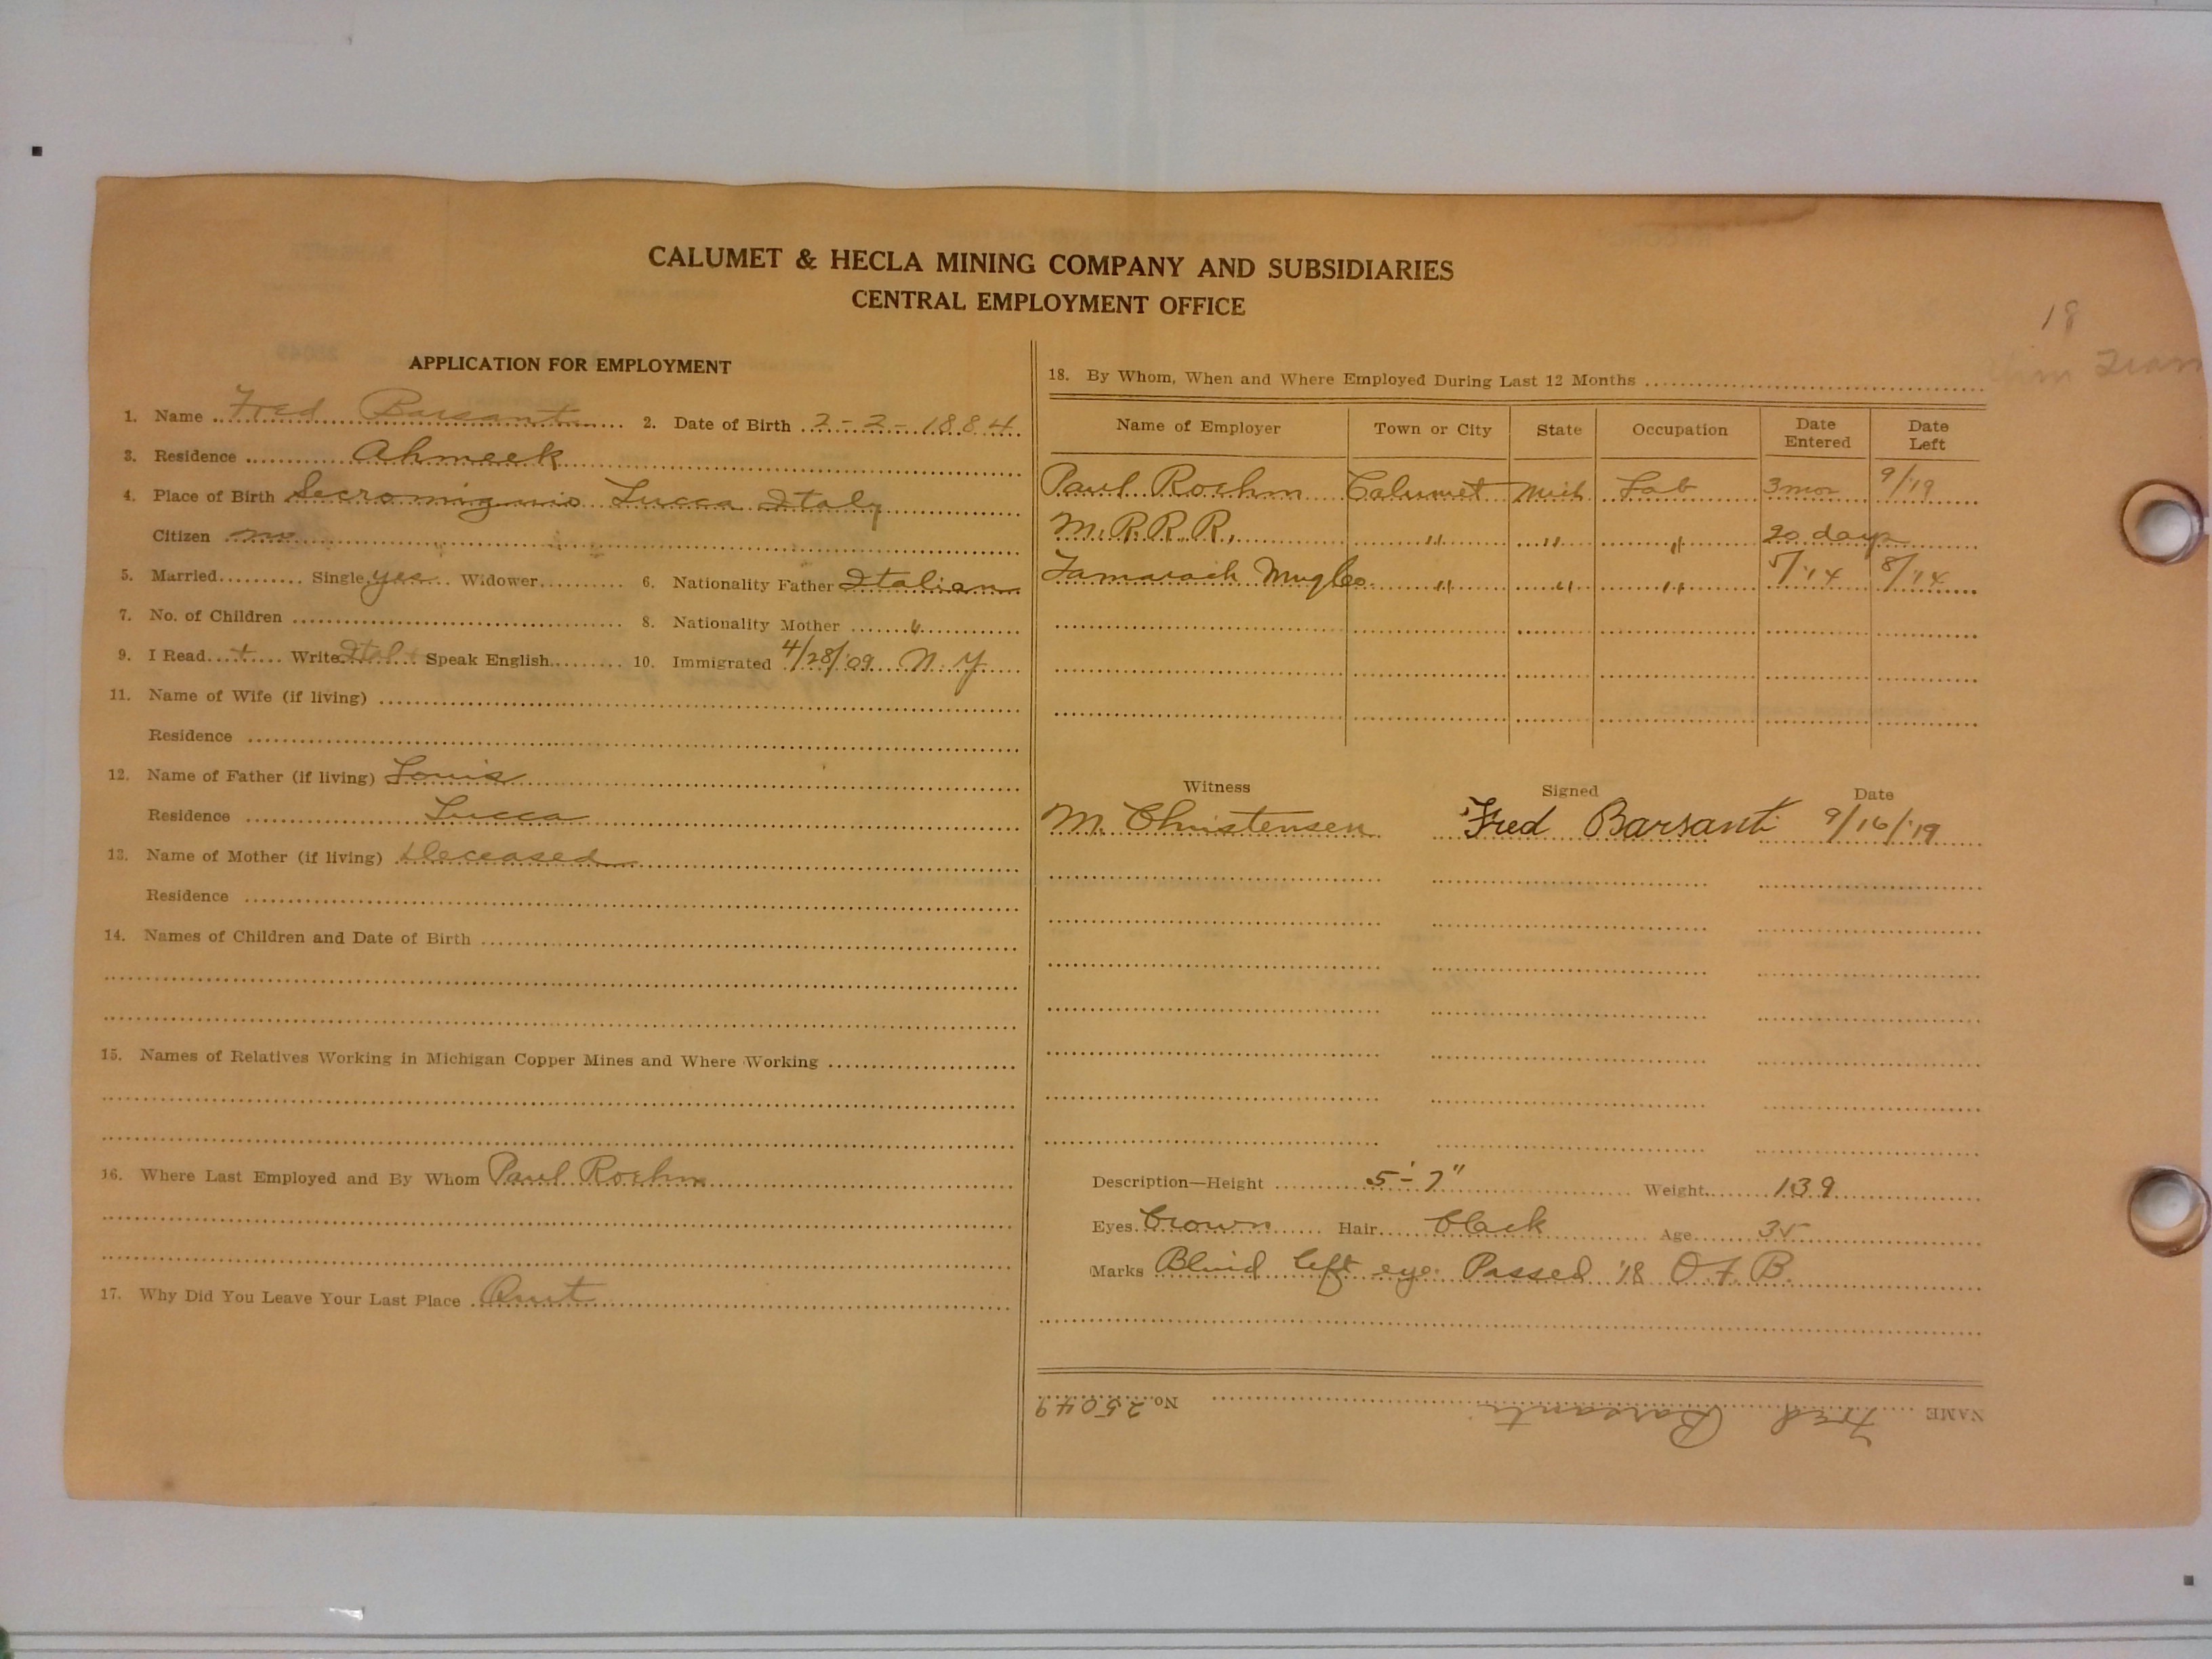 CALUMET & HECLA MINING COMPANY AND SUBSIDIARIES
CENTRAL EMPLOYMENT OFFICE
18
APPLICATION FOR EMPLOYMENT
1. Name Fred Barsanti 2. Date of Birth 2-2-1884
3. Residence Ahmeek
4. Place of Birth Secromignio Lucca Italy
Citizen no
5. Married Single yes Widower 6. Nationality Father Italian
7. No. of Children 8. Nationality Mother "
9. I Read + Write Ital Speak English 10. Immigrated 4/28/09 N.Y
11. Name of Wife (if living)
Residence
12. Name of Father (if living) Louis
Residence Lucca
13. Name of Mother (if living) Deceased
Residence
14. Names of Children and Date of Birth
15. Names of Relatives Working in Michigan Copper Mines and Where Working
16. Where Last Employed and By Whom Paul Roehm
17. Why Did You Leave Your Last Place Quit
18. By Whom, When and Where Employed During Last 12 Months
Name of Employer Town or City State Occupation Date Entered Date Left
Paul Roehm Calumet Mich Lab 3 mos 9/19
M.R.R.R. " " " 20 days
Tamarack Mng Co. " " " 5/'14 8/'14
Witness Signed Date
M. Christensen Fred Barsanti 9/16/'19
Description—Height 5'-7" Weight 139
Eyes brown Hair black Age 35
Marks Blind left eye. Passed '18 O.F.B.
NAME Fred Barsanti No. 25049